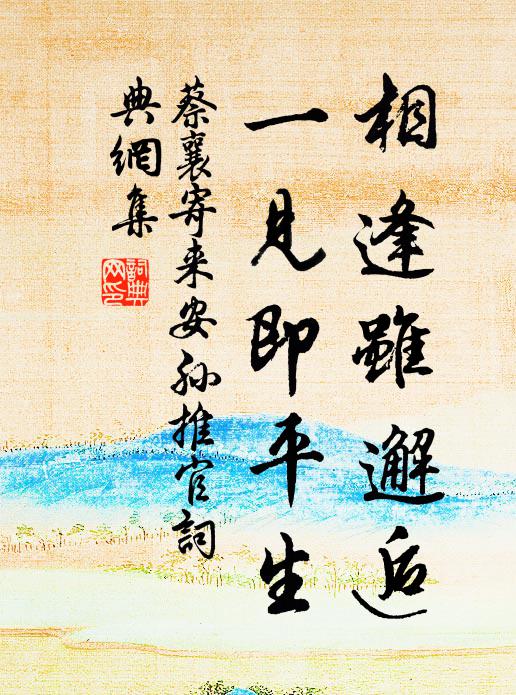 相逢雖邂逅
一見即平生
蔡襄寄来安孙推官詞
典網集
詞典
网印